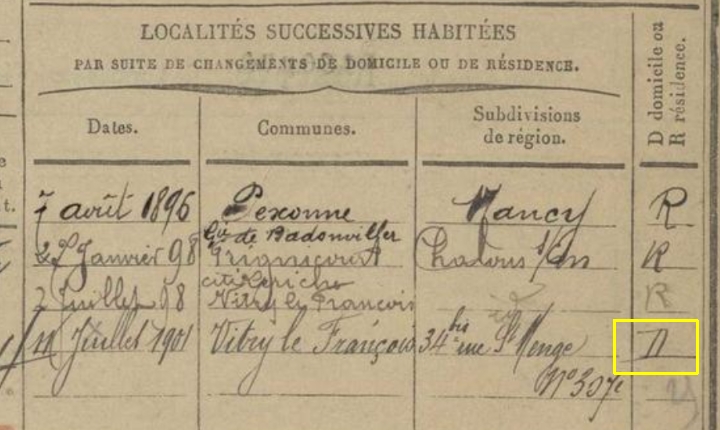 LOCALITÉS SUCCESSIVES HABITÉES
PAR SUITE DE CHANGEMENTS DE DOMICILE OU DE RÉSIDENCE.
D domicile ou
R résidence.
Dates.
Communes.
Subdivisions
de région.
7 août 1896 Pexonne Nancy R
de Badonviller
Janvier 98 Frignicourt Chalons s/m R
cité
2 Juillet 98 Vitry le François R
11 Juillet 1901 Vitry le François 34 bis rue St Menge D
t.